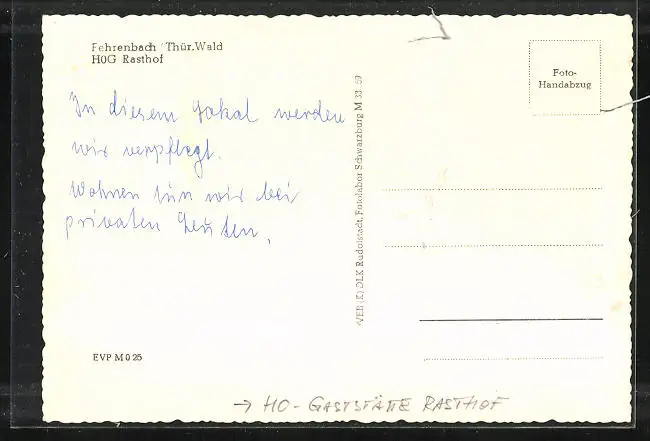 Fehrenbach Thür.Wald
HOG Rasthof
In diesem Lokal werden
wir verpflegt.
Wohnen tun wir bei
privaten Leuten.
EVP M 0 25
VEB (K) DLK Rudolstadt, Fotolabor Schwarzburg M 33 59
Foto-
Handabzug
→ HO-GASTSTÄTTE RASTHOF